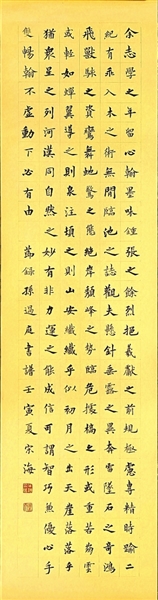 余志學之年留心翰墨味鍾張之餘烈挹羲獻之前規極慮專精時踰二
紀有乖入木之術無間臨池之志觀夫懸針垂露之異奔雷墜石之奇鴻
飛獸駭之資鸞舞虵驚之態絕岸頹峰之勢臨危據槁之形或重若崩雲
或輕如蟬翼導之則泉注頓之則山安纖纖乎似初月之出天崖落落乎
猶眾星之列河漢同自然之妙有非力運之能成信可謂智巧兼優心手
雙暢翰不虛動下必有由 節錄孫過庭書譜壬寅夏宗海